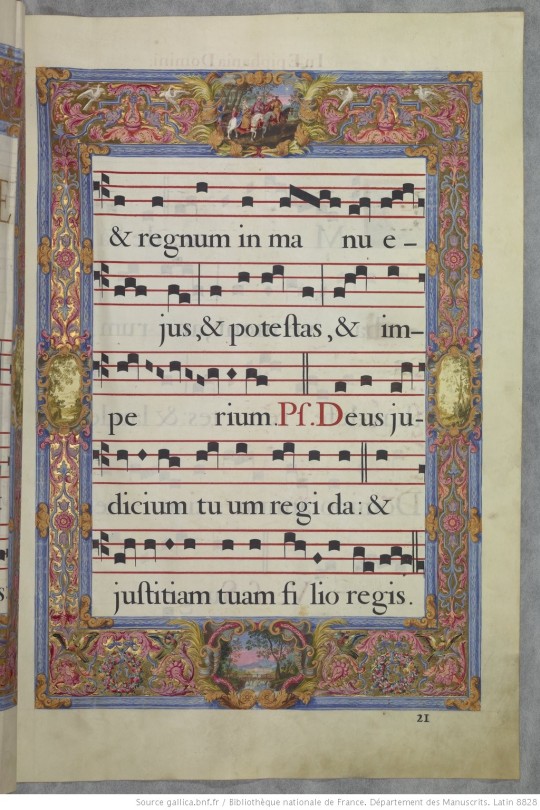 & regnum in ma nu e-
jus, & poteſtas, & im-
pe rium. Pſ. Deus ju-
dicium tu um regi da: &
juſtitiam tuam fi lio regis.
21
Source gallica.bnf.fr / Bibliothèque nationale de France. Département des Manuscrits. Latin 8828